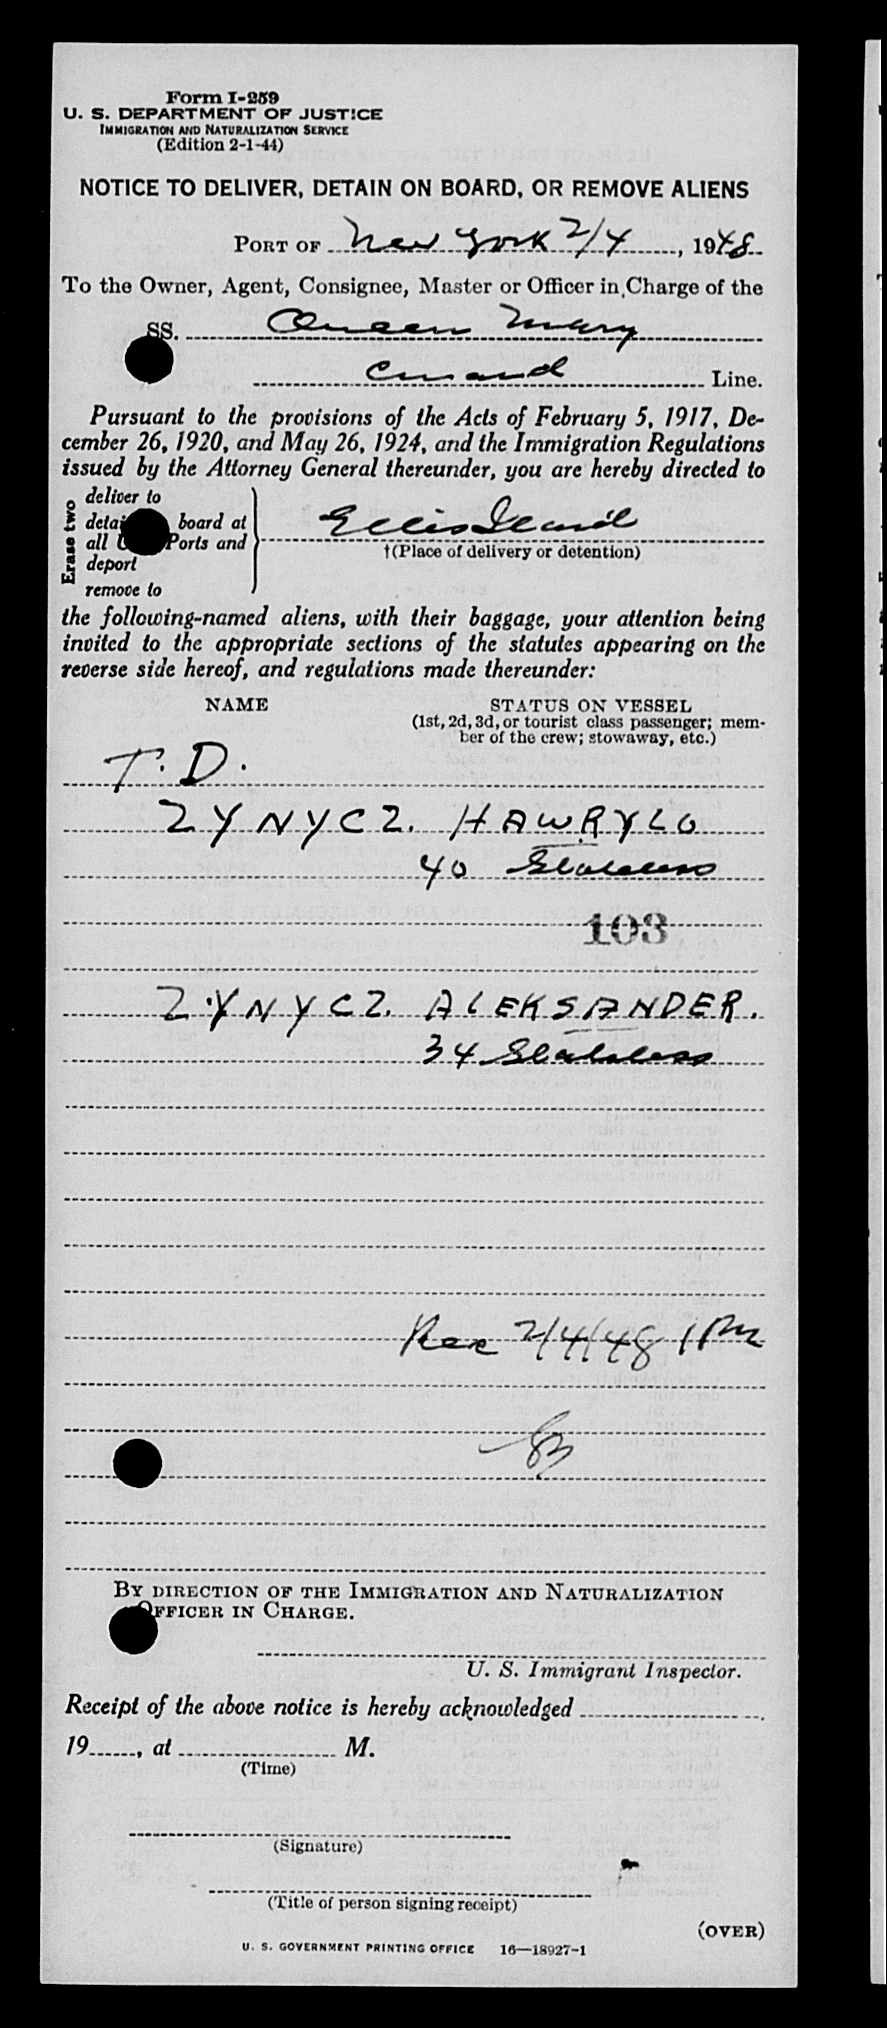 Form I-259
U. S. DEPARTMENT OF JUSTICE
IMMIGRATION AND NATURALIZATION SERVICE
(Edition 2-1-44)
NOTICE TO DELIVER, DETAIN ON BOARD, OR REMOVE ALIENS
PORT OF New York 2/4, 1948
To the Owner, Agent, Consignee, Master or Officer in Charge of the
SS. Queen Mary
Cunard Line.
Pursuant to the provisions of the Acts of February 5, 1917, De-
cember 26, 1920, and May 26, 1924, and the Immigration Regulations
issued by the Attorney General thereunder, you are hereby directed to
Erase two
deliver to
board at
all Ports and
deport
remove to
Ellis Island
†(Place of delivery or detention)
the following-named aliens, with their baggage, your attention being
invited to the appropriate sections of the statutes appearing on the
reverse side hereof, and regulations made thereunder:
NAME STATUS ON VESSEL
(1st, 2d, 3d, or tourist class passenger; mem-
ber of the crew; stowaway, etc.)
T. D.
ZYNYCZ. HAWRYLO
40 Stateless
103
ZYNYCZ. ALEKSANDER.
34 Stateless
Rec 2/4/48 1 PM
BY DIRECTION OF THE IMMIGRATION AND NATURALIZATION
OFFICER IN CHARGE.
U. S. Immigrant Inspector.
Receipt of the above notice is hereby acknowledged
19, at M.
(Time)
(Signature)
(Title of person signing receipt)
(OVER)
U. S. GOVERNMENT PRINTING OFFICE 16—18927-1